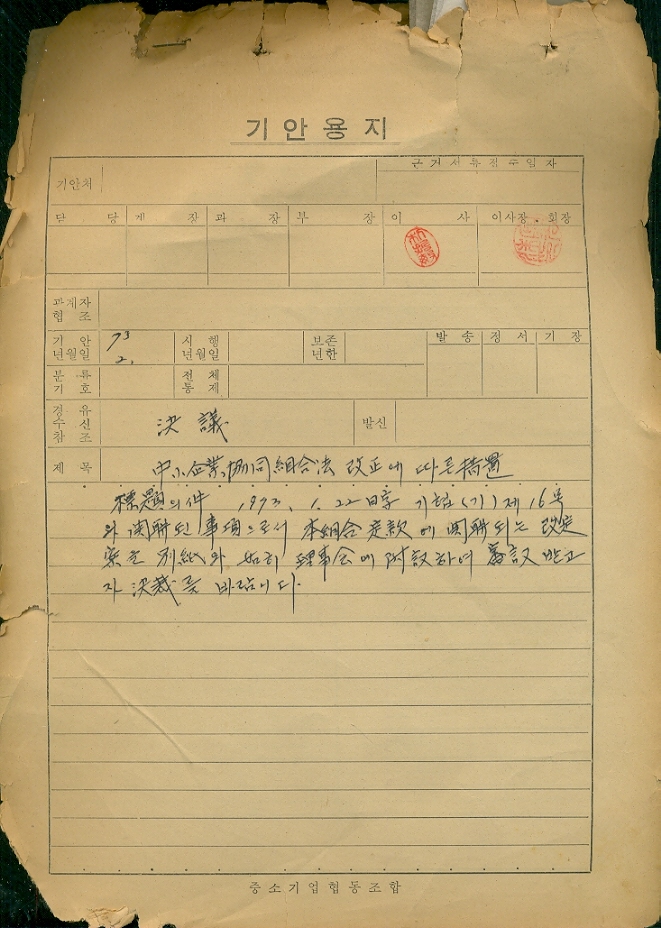 기안용지
기안처
근거서류접수일자
담 당 계 장 과 장 부 장 이 사 이사장·회장
관계자
협 조
기 안
년월일
73
2.
시 행
년월일
보존
년한
발송 정서 기장
분 류
기 호
전 체
통 제
경 유
수 신
참 조
決議
발신
제 목
中小企業協同組合法 改正에 따른 措置
標題의 件 1973. 1. 22日字 기협(기)제16号
와 関聯된 事項으로서 本組合 定款에 関聯되는 改定
案을 別紙와 如히 理事会에 附議하여 審議 받고
자 決裁를 바랍니다.
중소기업협동조합